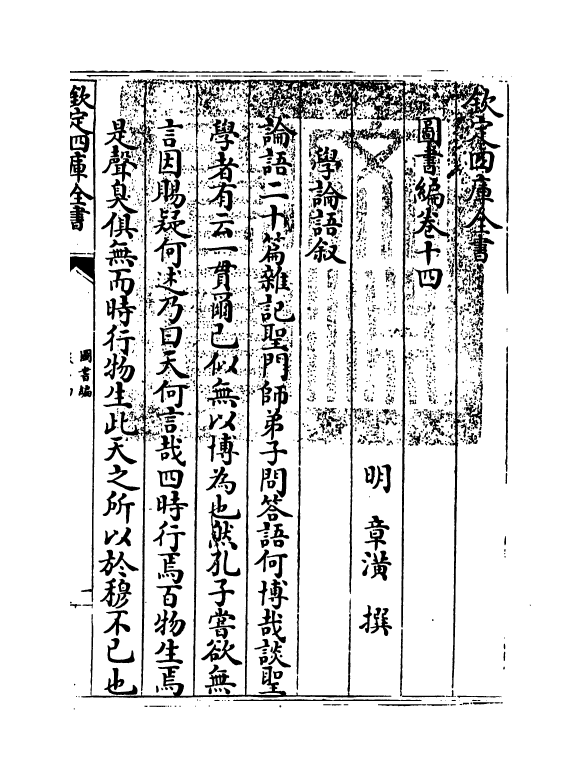 欽定四庫全書
圖書編卷十四
明 章潢 撰
學論語叙
論語二十篇雜記聖門師弟子問答語何博哉談聖
學者有云一貫爾已似無以博為也然孔子嘗欲無
言因賜疑何述乃曰天何言哉四時行焉百物生焉
是聲臭俱無而時行物生此天之所以於穆不已也
欽定四庫全書
圖書編
一